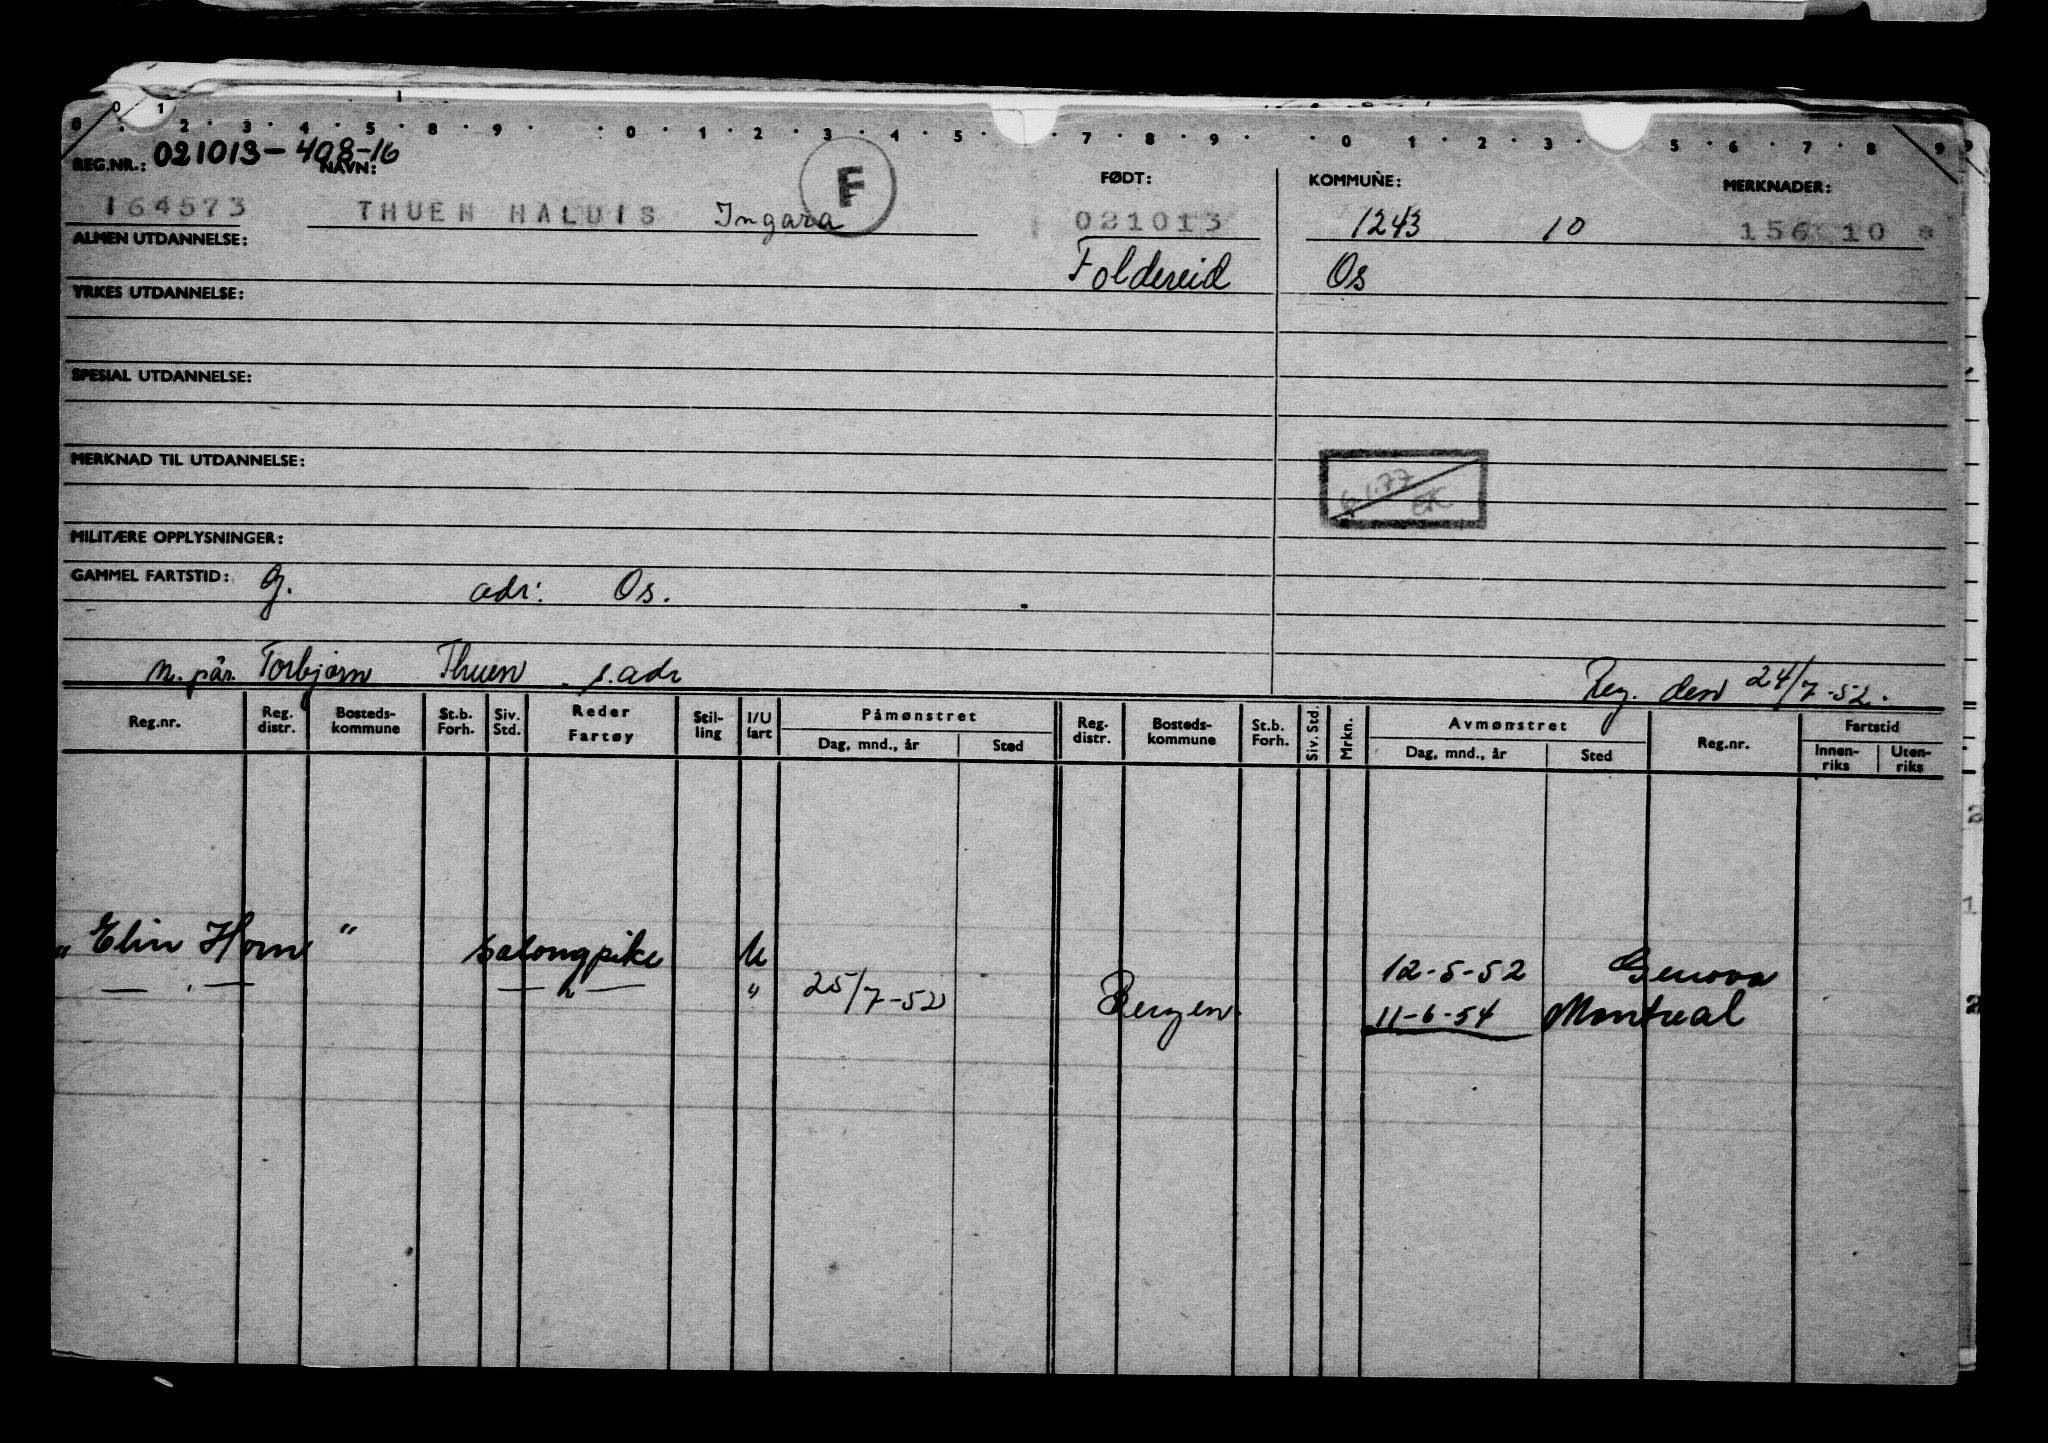 0 1 2 3 4 5 8 9 0 1 2 3 4 5 7 8 9 0 1 2 3 5 6 7 8 9
REG.NR.: 021013-408-16 NAVN: F FØDT: KOMMUNE: MERKNADER:
164573 THUEN HALDIS Ingara 021013 1243 10 10 *
ALMEN UTDANNELSE: Foldereid Os
YRKES UTDANNELSE:
SPESIAL UTDANNELSE:
MERKNAD TIL UTDANNELSE:
MILITÆRE OPPLYSNINGER:
GAMMEL FARTSTID: G. adr: Os.
n. pår. Torbjørn Thuen s. adr Reg. den 24/7-52.
Reg.nr. Reg. distr. Bosteds-kommune St.b. Forh. Siv. Std. Reder Fartøy Stil-ling I/U fart Påmønstret Dag, mnd., år Sted Reg. distr. Bosteds-kommune St.b. Forh. Siv. Std. Mrkn. Avmønstret Dag, mnd., år Sted Reg.nr. Fartstid Innen-riks Uten-riks
" Elin Horn " salongpike U 12-5-52 Genova
— " — — " — " 25/7-52 Bergen 11-6-54 Montreal